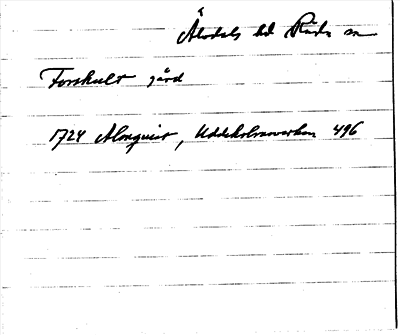 Älvdals hd Råda sn
Forshult gård
1724 Almquist, Uddeholmsverken 496